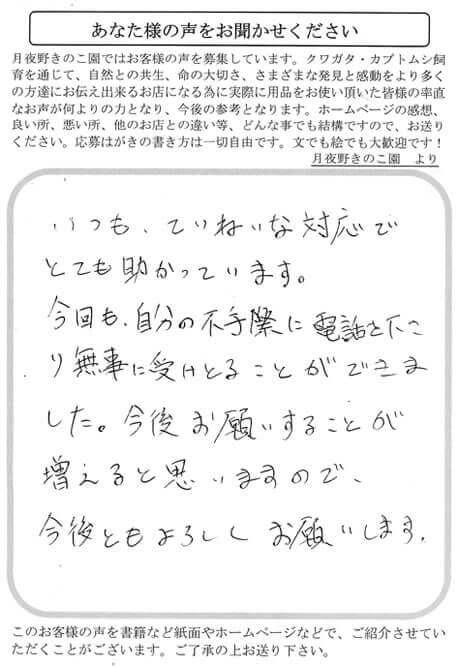 あなた様の声をお聞かせください
月夜野きのこ園ではお客様の声を募集しています。クワガタ・カブトムシ飼
育を通じて、自然との共生、命の大切さ、さまざまな発見と感動をより多く
の方達にお伝え出来るお店になる為に実際に用品をお使い頂いた皆様の率直
なお声が何よりの力となり、今後の参考となります。ホームページの感想、
良い所、悪い所、他のお店との違い等、どんな事でも結構ですので、お送り
ください。応募はがきの書き方は一切自由です。文でも絵でも大歓迎です！
月夜野きのこ園　より
いつも、ていねいな対応で
とても助かっています。
今回も、自分の不手際に電話を下さ
り無事に受けとることができま
した。今後お願いすることが
増えると思いますので、
今後ともよろしくお願いします。
このお客様の声を書籍など紙面やホームページなどで、ご紹介させてい
ただくことがございます。ご了承の上お送り下さい。